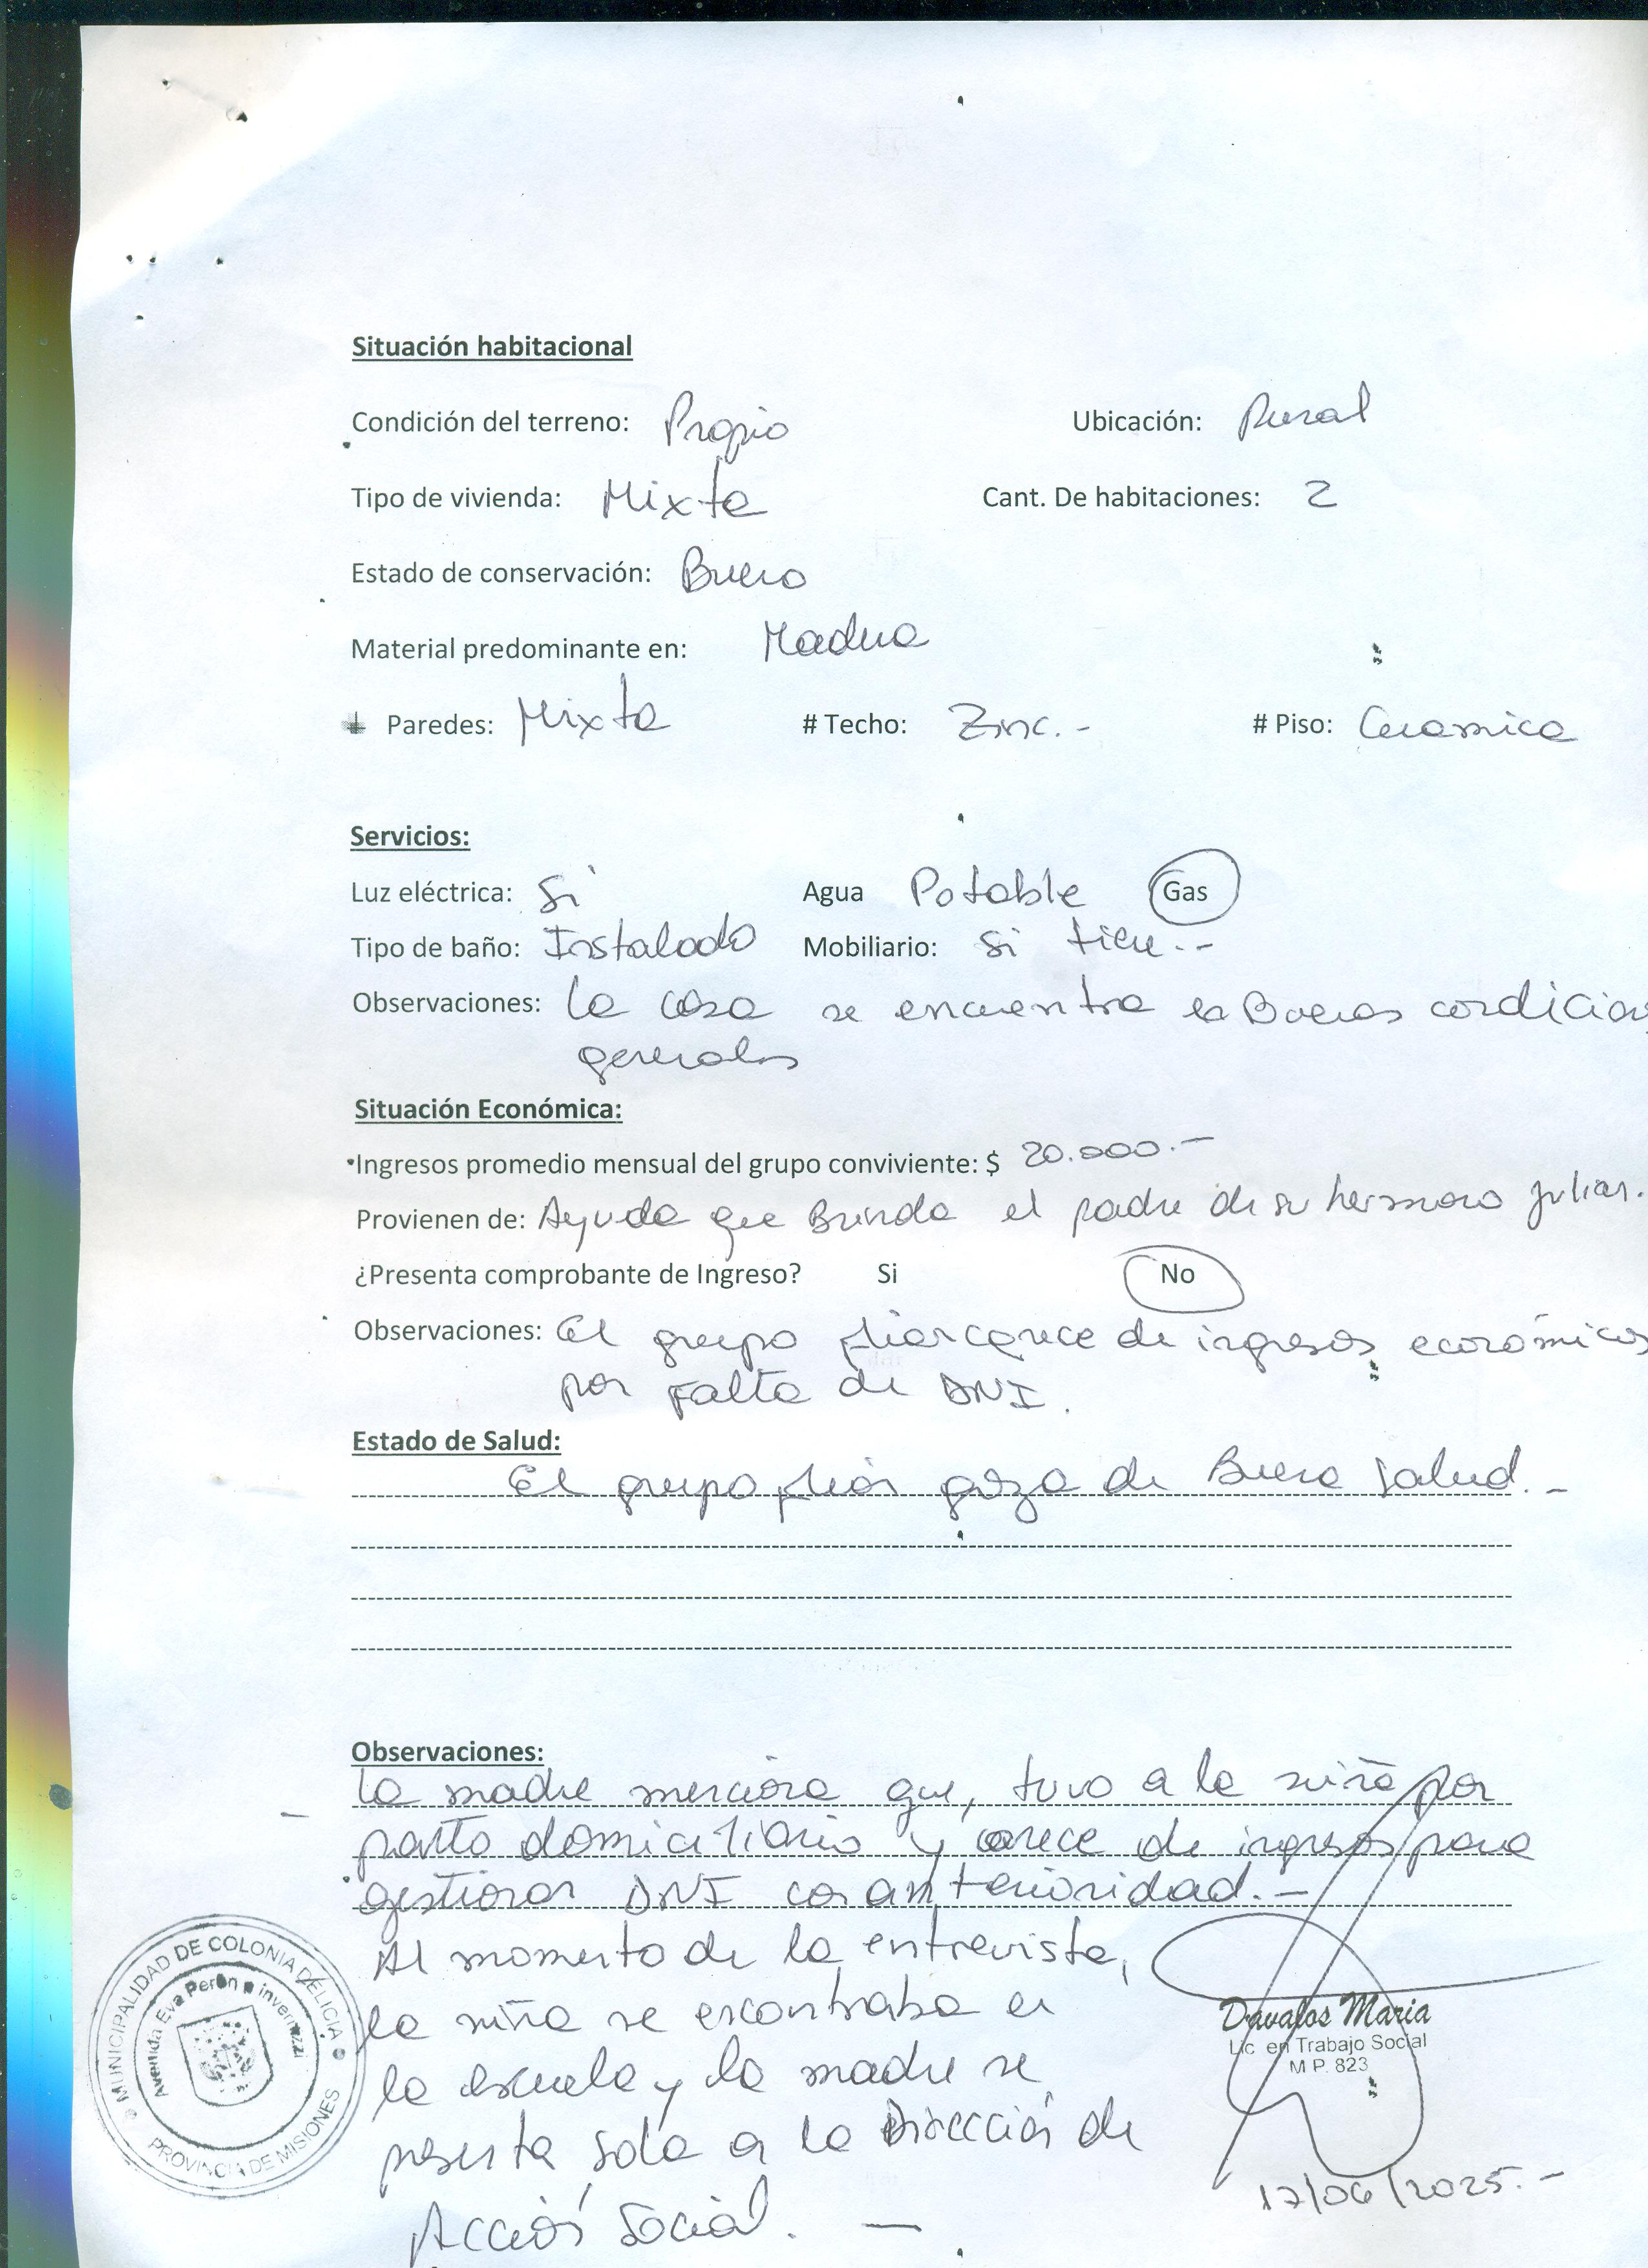 Situación habitacional
Condición del terreno: Propio Ubicación: Rural
Tipo de vivienda: Mixta Cant. De habitaciones: 2
Estado de conservación: Bueno
Material predominante en: Madera
Paredes: Mixta # Techo: Zinc.- # Piso: Ceramica
Servicios:
Luz eléctrica: Si Agua Potable Gas
Tipo de baño: Instalado Mobiliario: Si tiene.-
Observaciones: La casa se encuentra en Buenas condicion
generales
Situación Económica:
Ingresos promedio mensual del grupo conviviente: $ 20.000.-
Provienen de: Ayuda que Brinda el padre de su hermano Julian.
¿Presenta comprobante de Ingreso? Si No
Observaciones: El grupo carece de ingresos económicos
por Falta de DNI.
Estado de Salud:
El grupo goza de Buena Salud.-
Observaciones:
La madre menciona que, tuvo a la niña por
parto domiciliario y carece de ingresos para
gestionar DNI con anterioridad.-
Al momento de la entrevista,
la niña se encontraba en
la escuela y la madre se
presenta sola a la Dirección de
Acción Social. -
MUNICIPALIDAD DE COLONIA DELICIA
Avenida Eva Perón e invernizzi
PROVINCIA DE MISIONES
Davalos Maria
Lic en Trabajo Social
M P. 823
17/06/2025.-